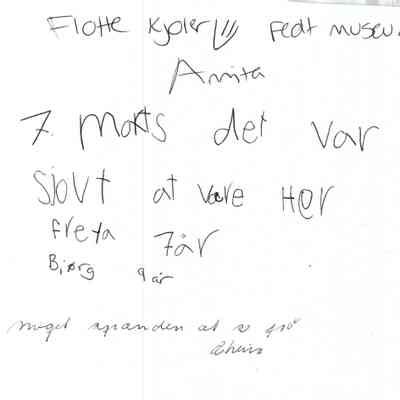 Flotte kjoler fedt museu.
Anita
7. marts det var
sjovt at være Her
freya 7år
Bjørg 9 år
meget spænden at se